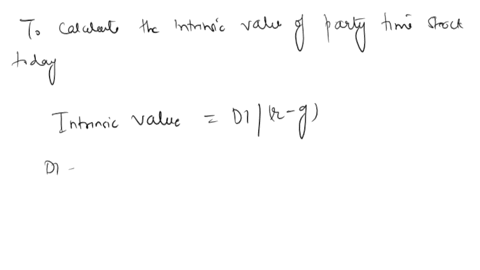 To calculate the intrinsic value of party time stock
today
Intrinsic value = D1/(r-g)
D1 -